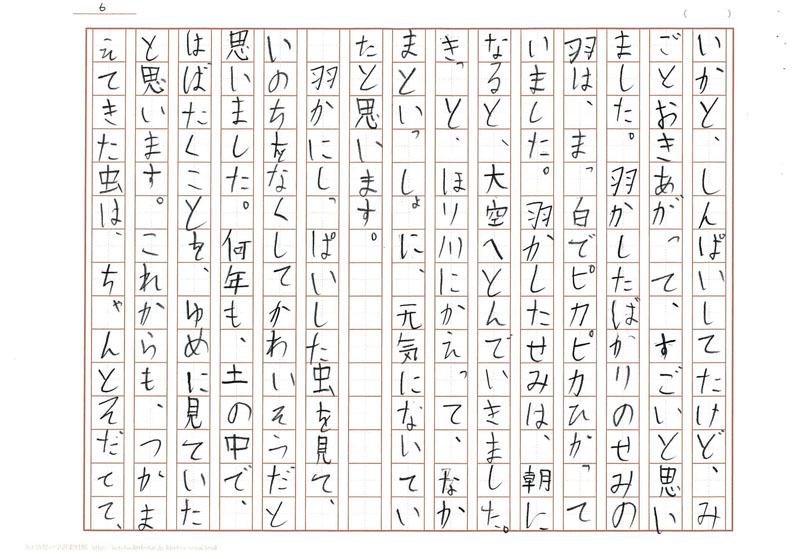 6
いかと、しんぱいしてたけど、み
ごとおきあがって、すごいと思い
ました。羽かしたばかりのせみの
羽は、まっ白でピカピカひかって
いました。羽かしたせみは、朝に
なると、大空へとんでいきました。
きっと、ほり川にかえって、なか
まといっしょに、元気にないてい
たと思います。
羽かにしっぱいした虫を見て、
いのちをなくしてかわいそうだと
思いました。何年も、土の中で、
はばたくことを、ゆめに見ていた
と思います。これからも、つかま
えてきた虫は、ちゃんとそだてて、